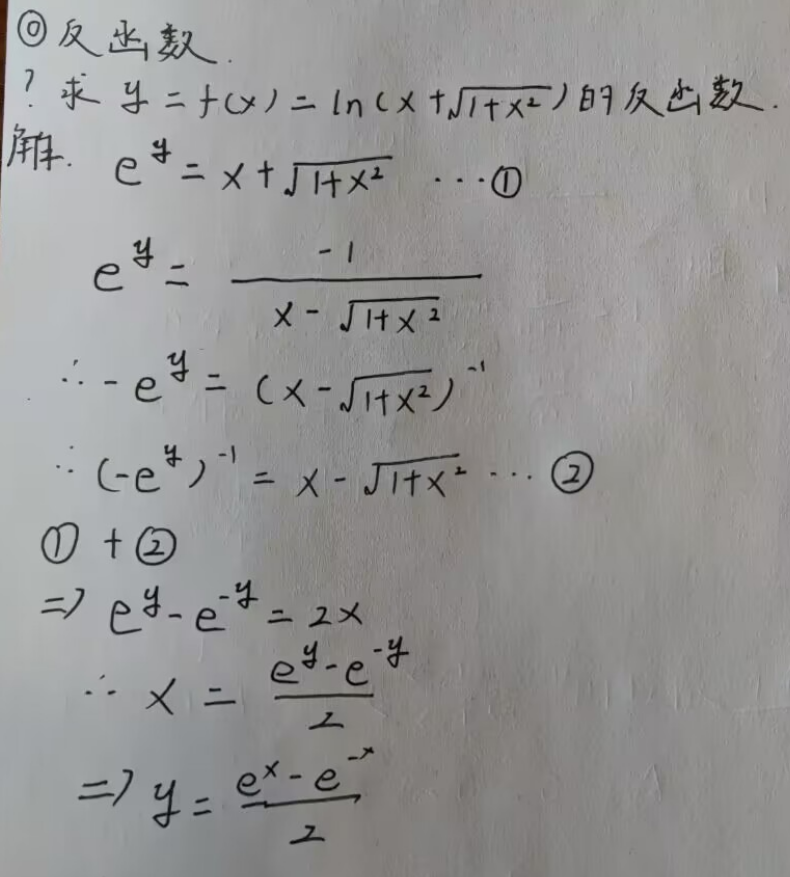 ⓪反函数.
? 求 y = f(x) = ln(x+√(1+x²))的反函数.
解. e^y = x + √(1+x²) ···①
e^y = -1/(x - √(1+x²))
∴ -e^y = (x - √(1+x²))^-1
∴ (-e^y)^-1 = x - √(1+x²) ··· ②
① + ②
=> e^y - e^-y = 2x
∴ x = (e^y - e^-y)/2
=> y = (e^x - e^-x)/2